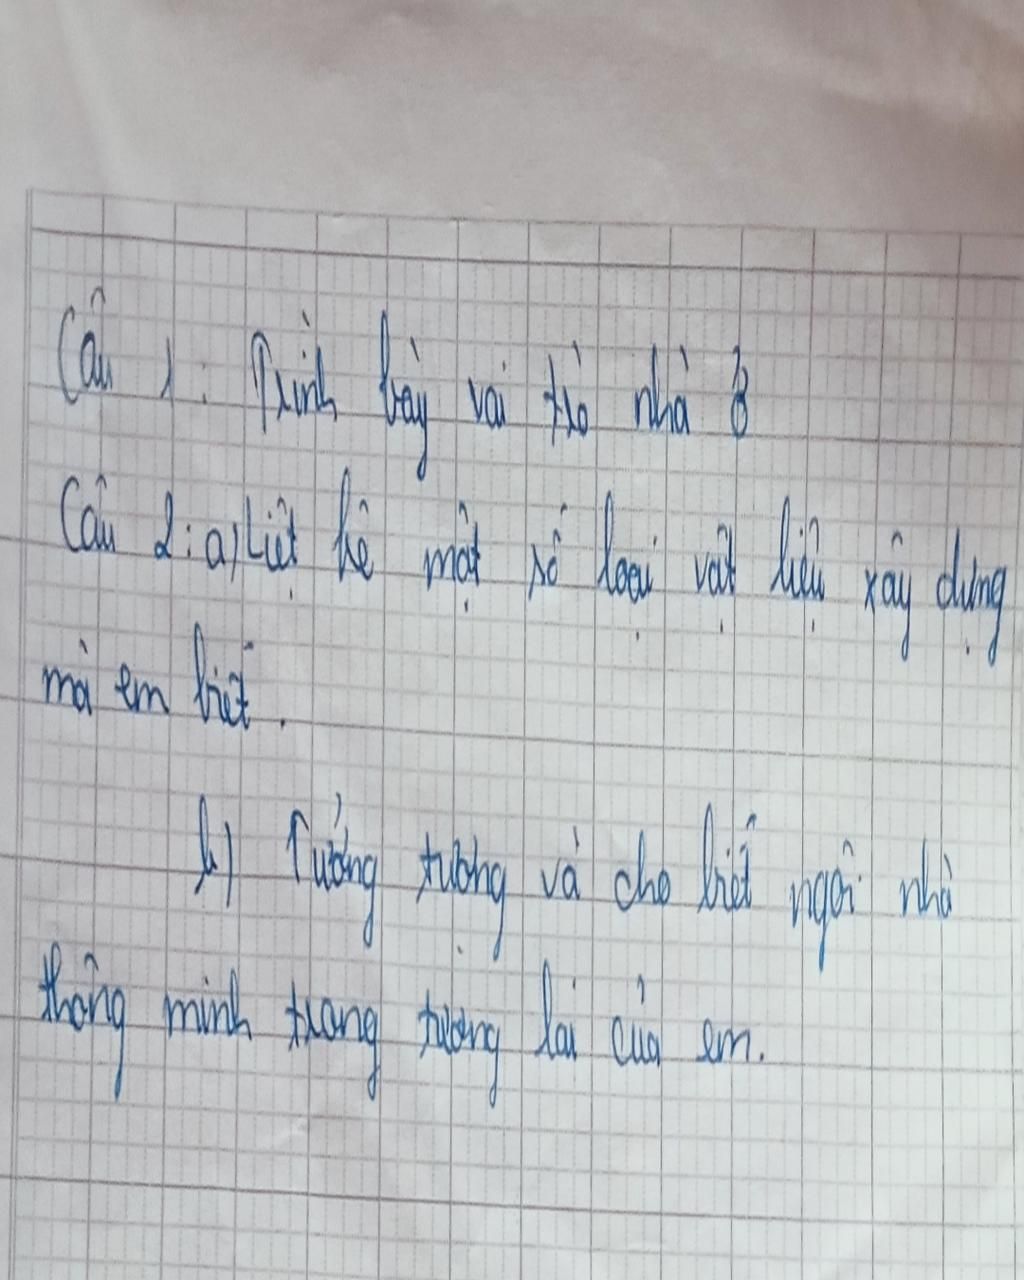 Câu 1: Trình bày vai trò nhà ở
Câu 2: a) Liệt kê một số loại vật liệu xây dựng
mà em biết.
b) Tưởng tượng và cho biết ngôi nhà
thông minh trong tương lai của em.